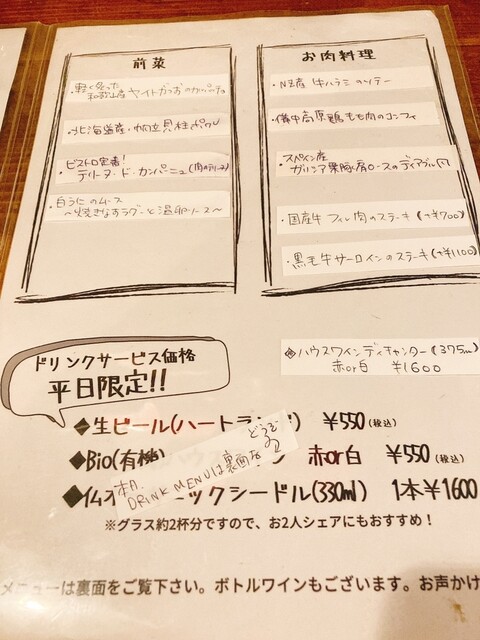 前菜
・軽く炙った
和歌山産 ヤイトがつおのカルパッチョ
・北海道産・帆立貝柱ポワレ
・ビストロ定番!
テリーヌ・ド・カンパーニュ(肉のテリーヌ)
・白うにのムース
～焼きなすラグーと温卵ソース～
お肉料理
・NZ産 牛ハラミのソテー
・備中高原鶏もも肉のコンフィ
・スペイン産
ガリシア栗豚肩ロースのディアブル風
・国産牛フィレ肉のステーキ(+¥700)
・黒毛牛サーロインのステーキ(+¥1100)
◆ハウスワインデキャンター(375ml)
赤or白 ¥1600
ドリンクサービス価格
平日限定!!
◆生ビール(ハートランド) ¥550(税込)
◆Bio(有機) 赤or白 ¥550(税込)
◆仏オ ックシードル(330ml) 1本¥1600
本日、DRINK MENUは裏面を
どうぞ
※グラス約2杯分ですので、お2人シェアにもおすすめ!
メニューは裏面をご覧下さい。ボトルワインもございます。お声かけ